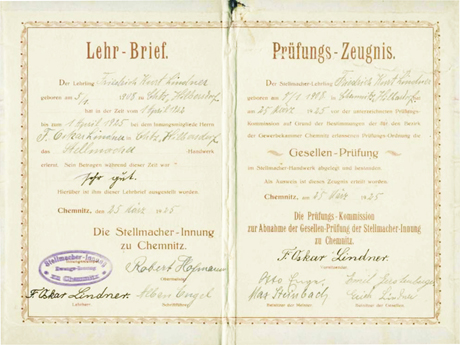 Lehr-Brief.
Der Lehrling Friedrich Kurt Lindner
geboren am 5/1. 1908 in
hat in der Zeit vom 1 April 1922
bis zum 1 April 1925 bei dem Innungsmitgliede Herrn
F. Oskar Lindner in
das Stellmacher Handwerk
erlernt. Sein Betragen während dieser Zeit war
sehr gut.
Hierüber ist ihm dieser Lehrbrief ausgestellt worden.
Chemnitz, den 25 März 1925
Die Stellmacher-Innung
zu Chemnitz.
Stellmacher-Innung
Zwangs-Innung
zu Chemnitz
Robert Hofmann
F. Oskar Lindner.
Albin Engel
Lehrherr.
Prüfungs-Zeugnis.
Der Stellmacher-Lehrling Friedrich Kurt Lindner
geboren am 5/1. 1908 in
25 März 1925 vor der unterzeichneten Prüfungs-
kommission auf Grund der Bestimmungen der für den Bezirk
der Gewerbekammer Chemnitz erlassenen Prüfungs-Ordnung die
Gesellen-Prüfung
im Stellmacher-Handwerk abgelegt und bestanden.
Als Ausweis ist dieses Zeugnis erteilt worden.
Chemnitz, den 25 März 1925
Die Prüfungs-Kommission
zur Abnahme der Gesellen-Prüfung der Stellmacher-Innung
zu Chemnitz.
F. Oskar Lindner.
Vorsitzender.
Otto Emil
Max Steinbach Lindner
Beisitzer der Meister. Beisitzer der Gesellen.